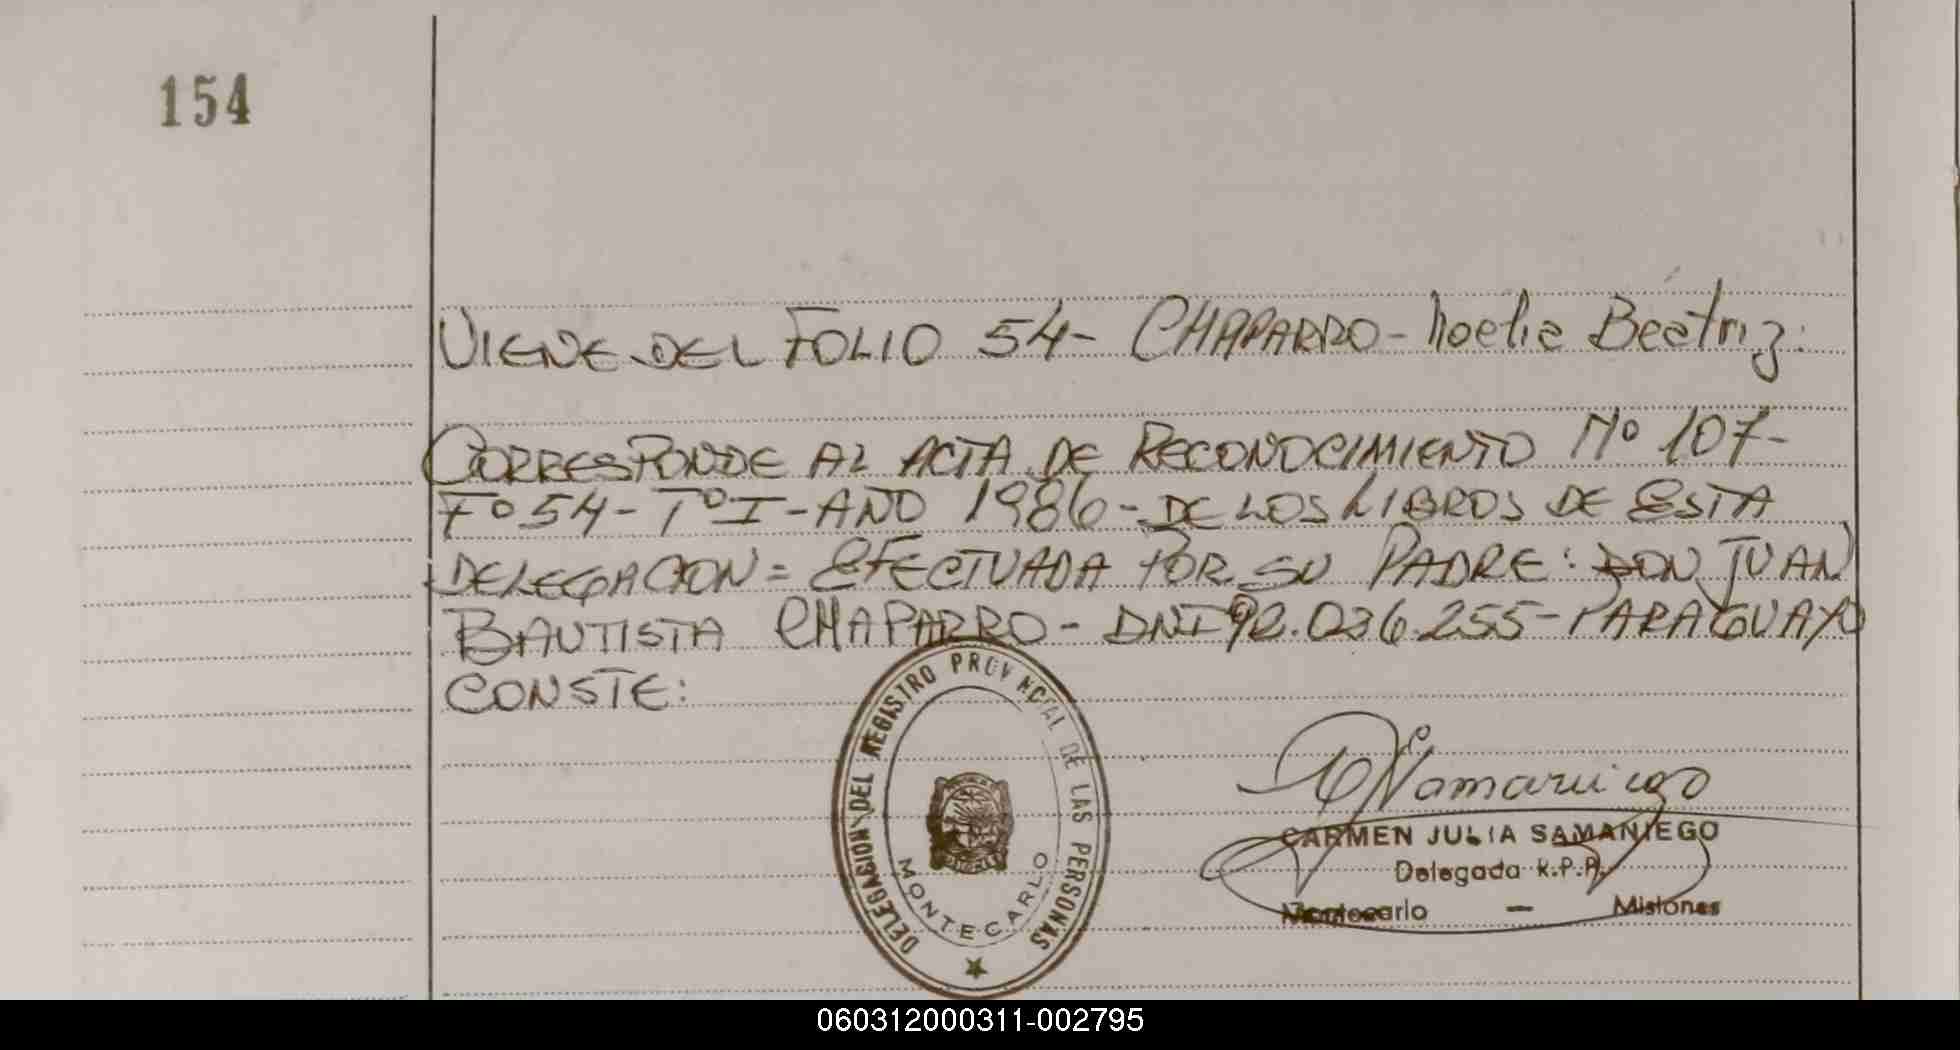 154
VIENE DEL FOLIO 54- CHAPARRO- Noelia Beatriz:
CORRESPONDE AL ACTA DE RECONOCIMIENTO Nº 107-
Fº 54- Tº I- AÑO 1986- DE LOS LIBROS DE ESTA
DELEGACION= EFECTUADA POR SU PADRE: DON JUAN
BAUTISTA CHAPARRO- DNI 92.036.255- PARAGUAYO
CONSTE:
DELEGACION DEL REGISTRO PROVINCIAL DE LAS PERSONAS
MONTECARLO
CARMEN JULIA SAMANIEGO
Delegada R.P.P.
Montecarlo — Misiones
060312000311-002795